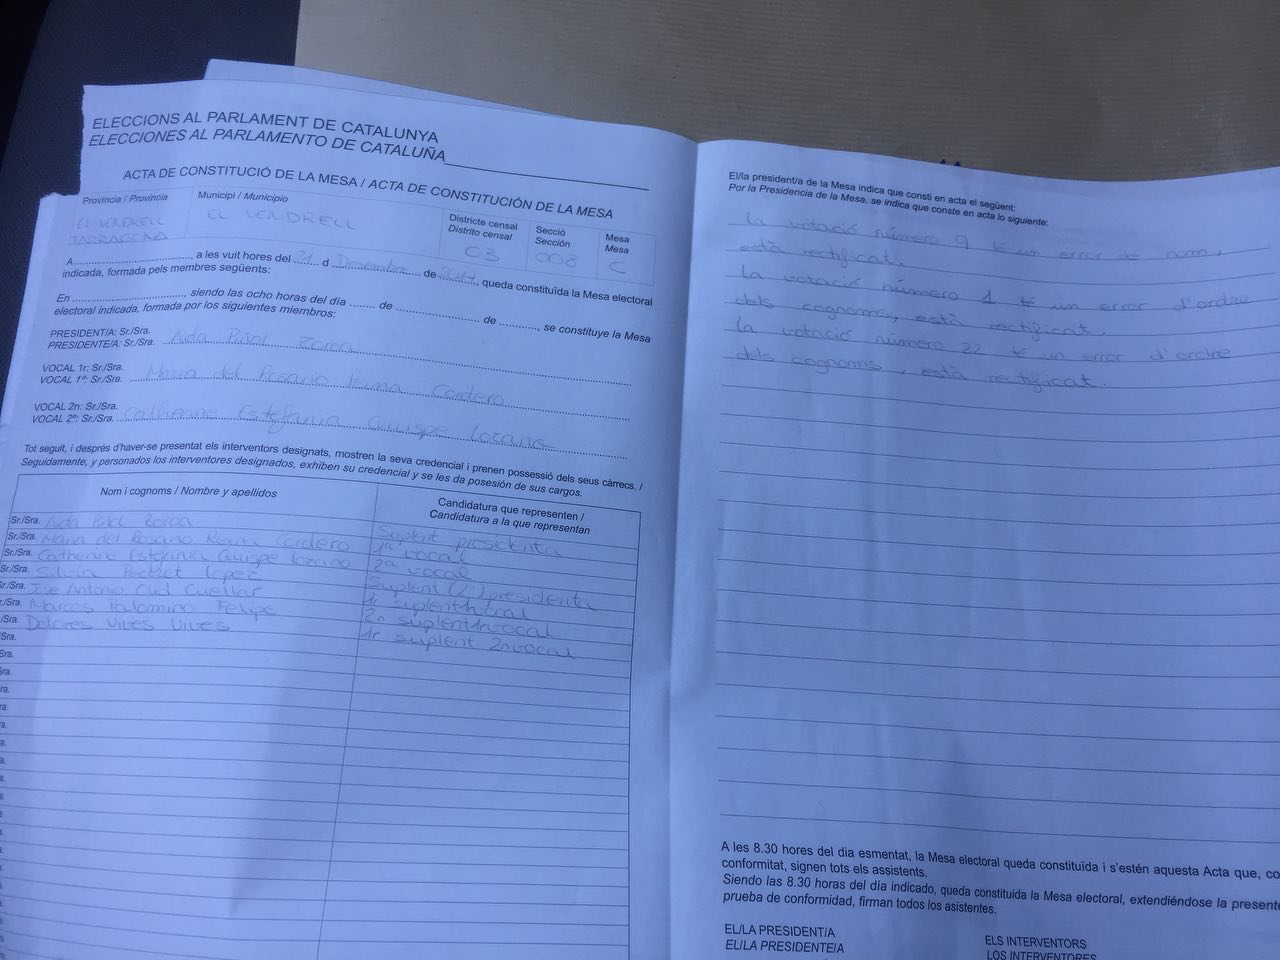 ELECCIONS AL PARLAMENT DE CATALUNYA
ELECCIONES AL PARLAMENTO DE CATALUÑA
ACTA DE CONSTITUCIÓ DE LA MESA / ACTA DE CONSTITUCIÓN DE LA MESA
Província / Provincia
EL VENDRELL
TARRAGONA
Municipi / Municipio
EL VENDRELL
Districte censal
Distrito censal
03
Secció
Sección
008
Mesa
Mesa
C
A ..................., a les vuit hores del 21 d Desembre de 2017, queda constituïda la Mesa electoral
indicada, formada pels membres següents:
En ..................., siendo las ocho horas del día ....... de ................... de .........., se constituye la Mesa
electoral indicada, formada por los siguientes miembros:
PRESIDENT/A: Sr./Sra.
PRESIDENTE/A: Sr./Sra. Aida Piñol Zoroa
VOCAL 1r: Sr./Sra.
VOCAL 1º: Sr./Sra. Maria del Rosario Cordero
VOCAL 2n: Sr./Sra.
VOCAL 2º: Sr./Sra. Catherine Estefania Quispe Lozano
Tot seguit, i després d'haver-se presentat els interventors designats, mostren la seva credencial i prenen possessió dels seus càrrecs. /
Seguidamente, y personados los interventores designados, exhiben su credencial y se les da posesión de sus cargos.
Nom i cognoms / Nombre y apellidos
Candidatura que representen /
Candidatura a la que representan
Sr./Sra. Aida Piñol Zoroa Suplent presidenta
Sr./Sra. Maria del Rosario Cordero 1ª vocal
Sr./Sra. Catherine Estefania Quispe Lozano 2ª vocal
Sr./Sra. Silvia Lopez Suplent (2) presidenta
Sr./Sra. Jose Antonio Cid Cuellar 1r suplent 1r vocal
r./Sra. Marcos Palomino Felipe 2n suplent 1r vocal
/Sra. Dolores Vives Vives 1r suplent 2n vocal
El/la president/a de la Mesa indica que consti en acta el següent:
Por la Presidencia de la Mesa, se indica que conste en acta lo siguiente:
La votació número 9 té un error de nom,
està rectificat.
La votació número 1 té un error d'ordre
dels cognoms, està rectificat.
La votació número 22 té un error d'ordre
dels cognoms, està rectificat.
A les 8.30 hores del dia esmentat, la Mesa electoral queda constituïda i s'estén aquesta Acta que, co
conformitat, signen tots els assistents.
Siendo las 8.30 horas del día indicado, queda constituida la Mesa electoral, extendiéndose la presente
prueba de conformidad, firman todos los asistentes.
EL/LA PRESIDENT/A
EL/LA PRESIDENTE/A
ELS INTERVENTORS
LOS INTERVENTORES